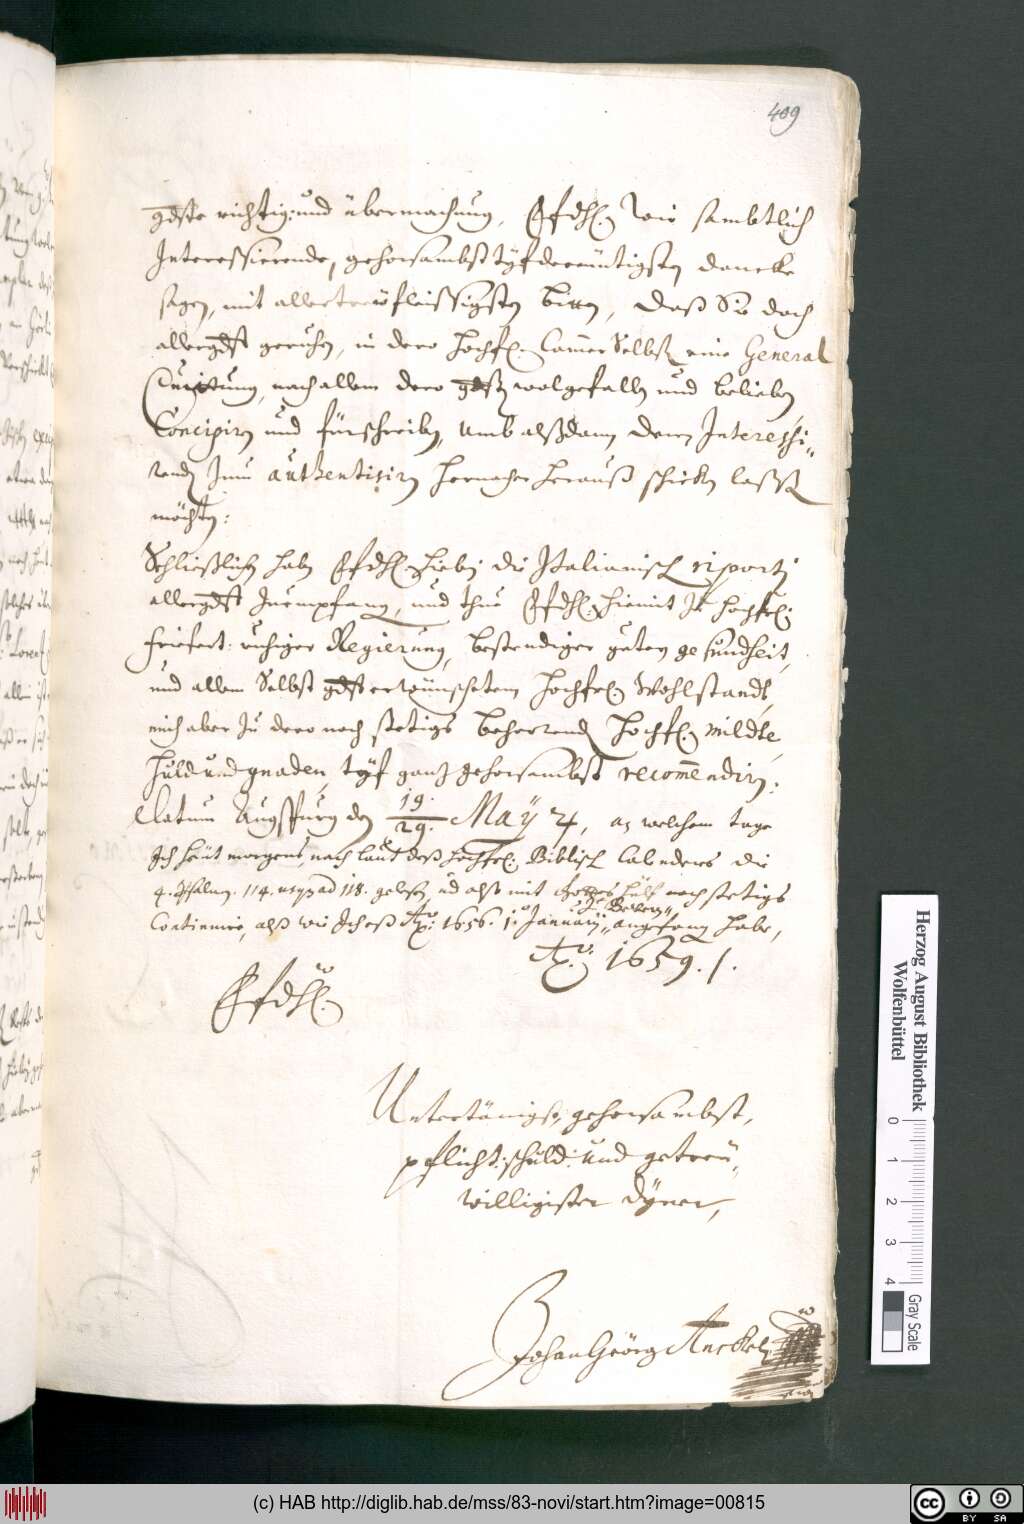 409
gdste richtig: und übermachung, Efdhl. wir sambtlich
Interessierende, gehorsambst tyf deemütigsten dancke
sagen, mit allertreüfleissigsten bitten, daß Sie doch
allergdst geruhen, in dero hochfl. Cammer Selbst eine General
Quittung, nach allem dero gdsten wolgefallen und belieben,
Concipirn und fürschreiben, umb alßdann dem Interessi-
renden Zum authentisirn hernacher herauß schicken lassen
möchten:
Schließlichen haben Efdhl. hiebei die Italianisch riporti
allergdst Zuempfang, und thue Efdhl. hiemit Zu hochfrl.
friefert: ruhiger Regierung, bestendiger guten gesundheit,
und allem Selbst gdst erwünschetem hochfrl. Wohlstands,
mich aber Zu dero noch stetigs beharrende hochfl. milde
huld und gnaden, tyf gantz gehorsambst recommendirn:
Datum Augspurg den 19./29. May 4, an welchem tage
Ich heüt morgens, nach laut deß hochfrl. Biblisch Calenders die
4. Psalm. 114. usque ad 118. gelesen, ud alß mit Gottes hülf noch stetigs
Continuire, alß wie Ich eß Ao: 1656. 1. January angefang habe,
Ao: 1659. /.
Efdhl.
Untertänigst, gehorsambst,
pflicht: schuld: und getreü
willigister dyner,
Johan Georg Anckel
Herzog August Bibliothek
Wolfenbüttel
0 1 2 3 4
Gray Scale
(c) HAB http://diglib.hab.de/mss/83-novi/start.htm?image=00815
cc BY SA